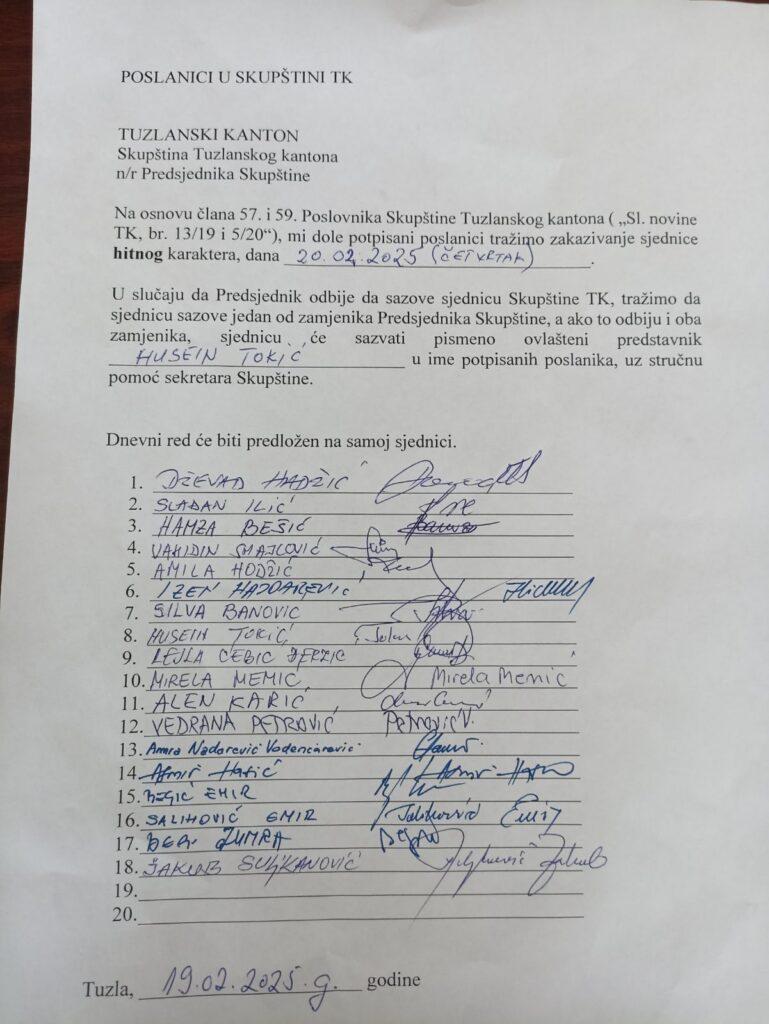 POSLANICI U SKUPŠTINI TK
TUZLANSKI KANTON
Skupština Tuzlanskog kantona
n/r Predsjednika Skupštine
Na osnovu člana 57. i 59. Poslovnika Skupštine Tuzlanskog kantona ( „Sl. novine
TK, br. 13/19 i 5/20“), mi dole potpisani poslanici tražimo zakazivanje sjednice
hitnog karaktera, dana 20.02.2025 (ČETVRTAK).
U slučaju da Predsjednik odbije da sazove sjednicu Skupštine TK, tražimo da
sjednicu sazove jedan od zamjenika Predsjednika Skupštine, a ako to odbiju i oba
zamjenika, sjednicu će sazvati pismeno ovlašteni predstavnik
HUSEIN TOKIĆ u ime potpisanih poslanika, uz stručnu
pomoć sekretara Skupštine.
Dnevni red će biti predložen na samoj sjednici.
1. DŽEVAD HADŽIĆ
2. SLAĐAN ILIĆ
3. HAMZA BEŠIĆ
4. VAHIDIN SMAJLOVIĆ
5. AMILA HODŽIĆ
6. IZEN HAJDAREVIĆ
7. SILVA BANOVIĆ
8. HUSEIN TOKIĆ
9. LEJLA
10. MIRELA MEMIĆ Mirela Memić
11. ALEN KARIĆ
12. VEDRANA PETROVIĆ Petrović V.
13. Amra Nadarević Vodenčarević
14.
15. BEGIĆ EMIR
16. SALIHOVIĆ EMIR Salihović Emir
17. ZUMRA
18. JAKUB SULJKANOVIĆ
19.
20.
Tuzla, 19.02.2025.g. godine